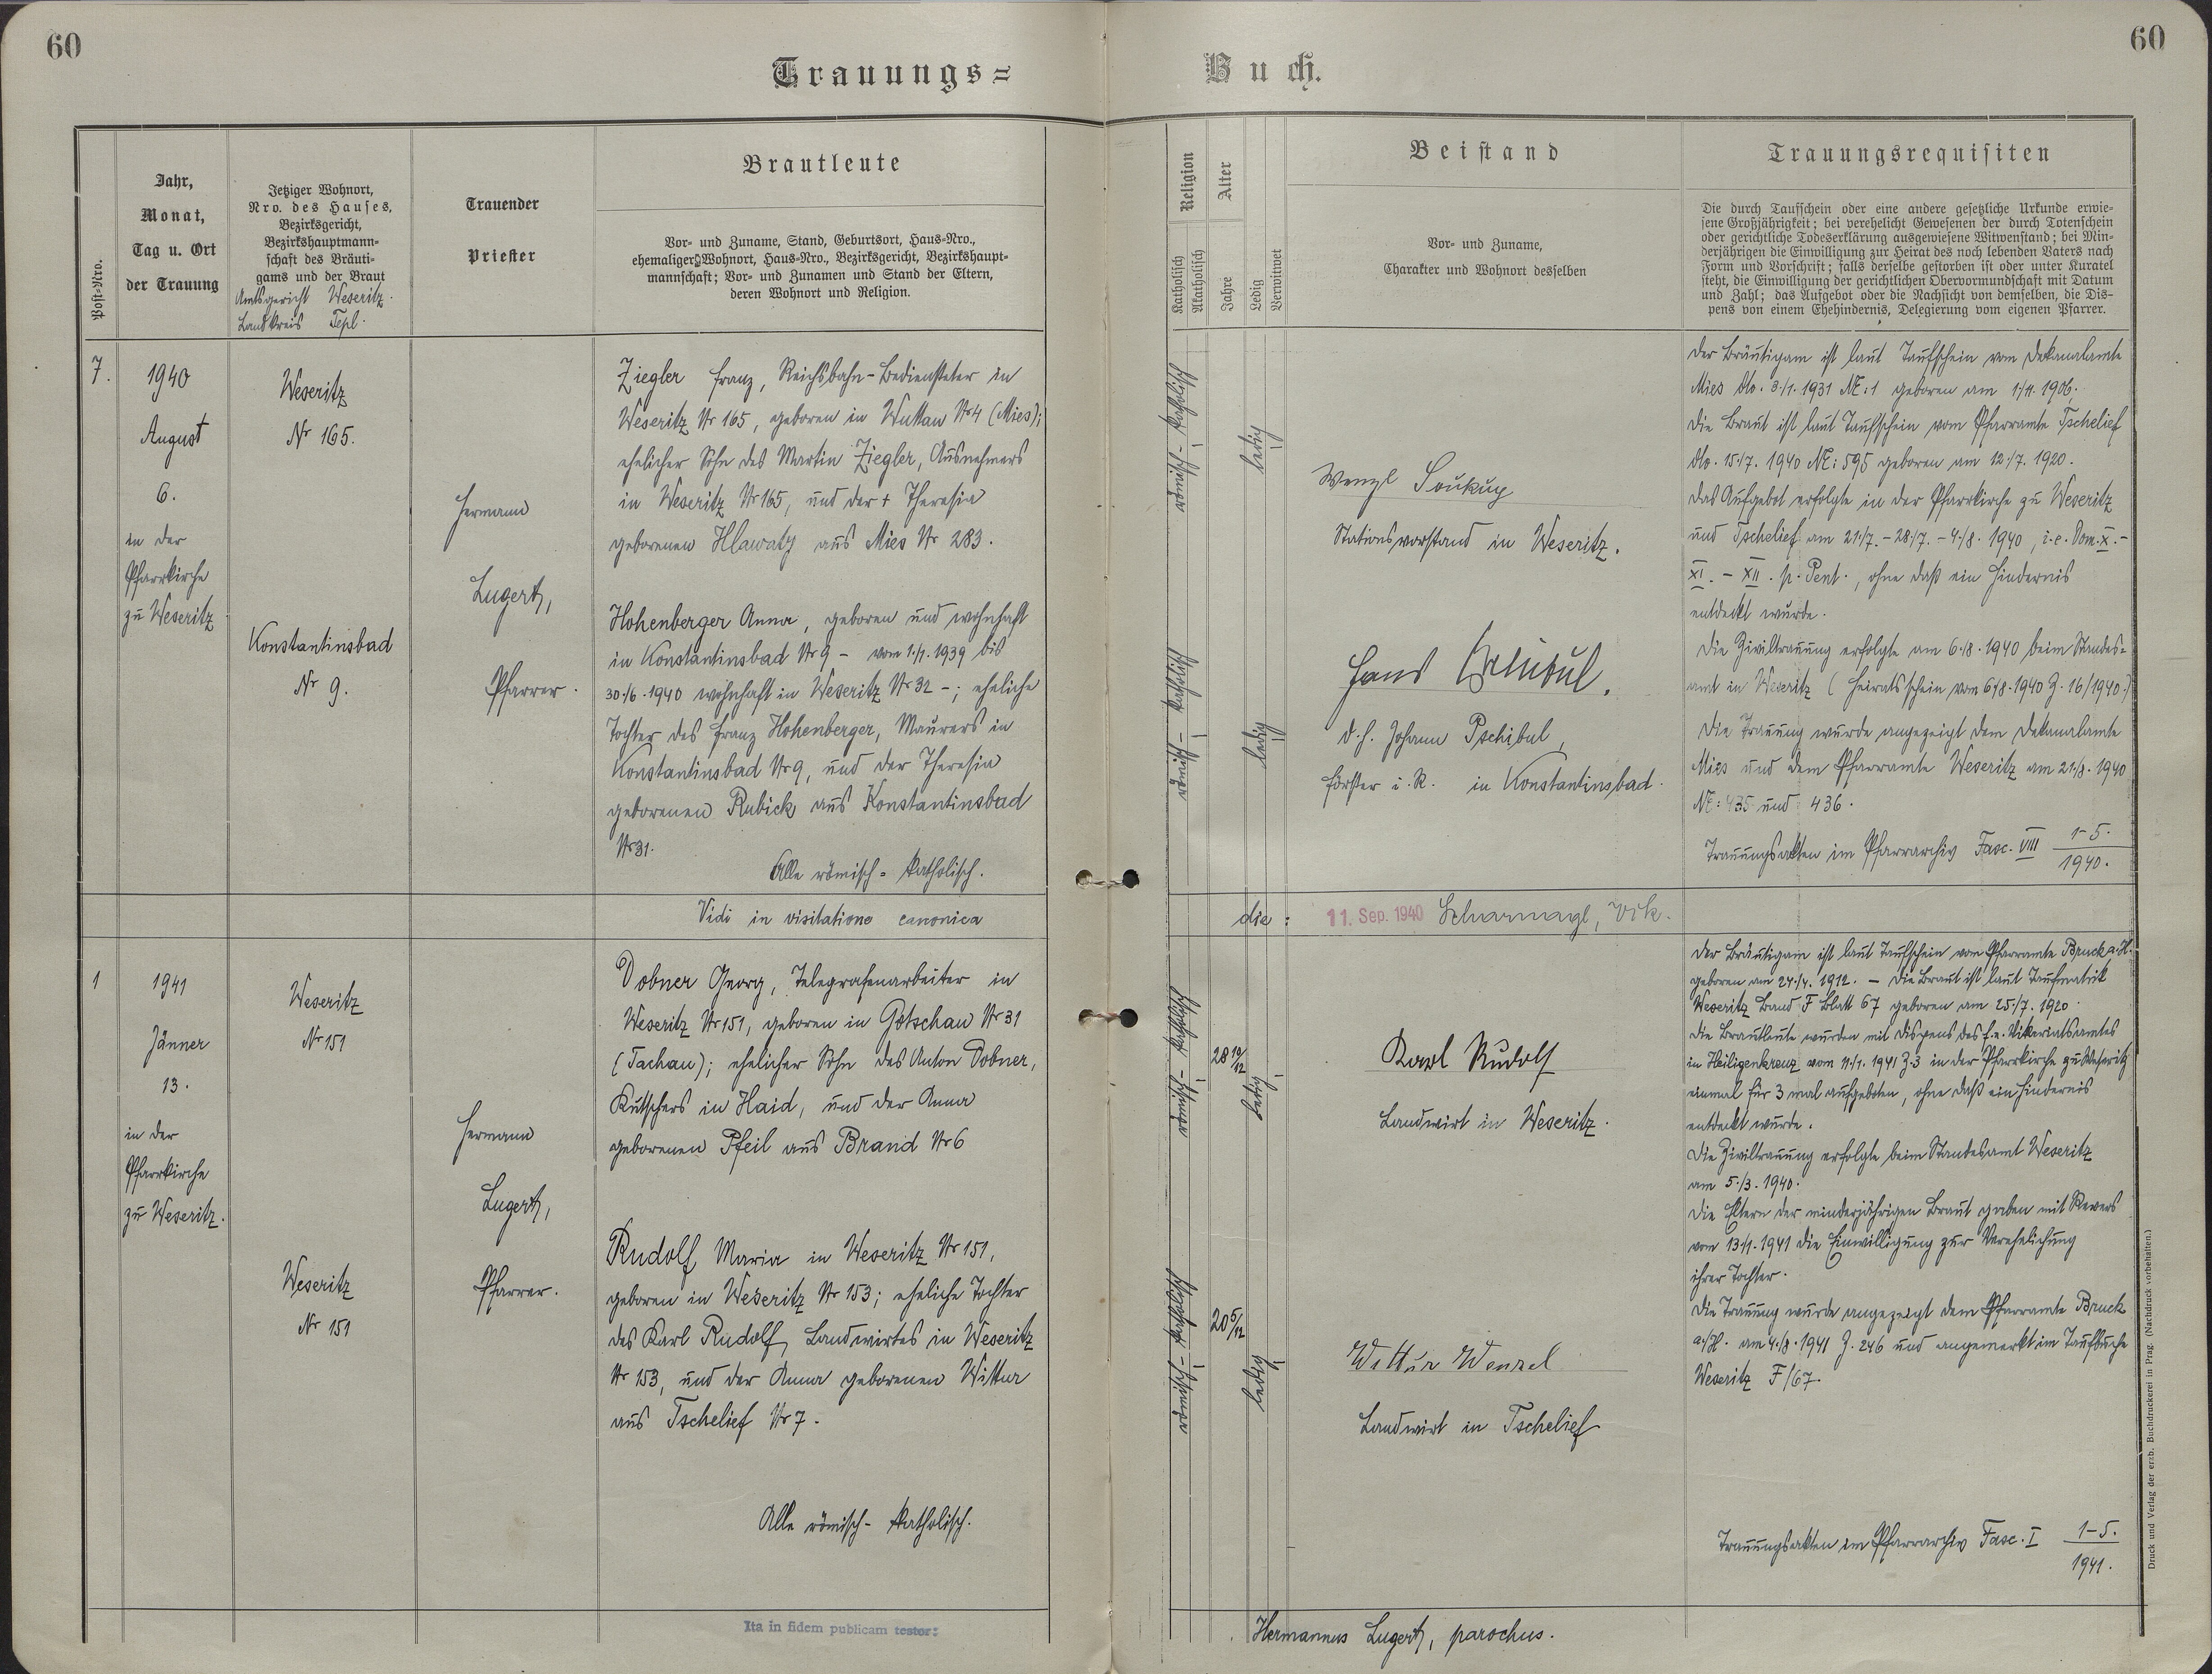 60
60
Trauungs=
Buch.
Post=Nro.
Jahr,
Monat,
Tag u. Ort
der Trauung
Jetziger Wohnort,
Nro. des Hauses,
Bezirksgericht,
Bezirkshauptmann=
schaft des Bräuti=
gams und der Braut
Amtsgericht Weseritz.
Landkreis Tepl.
Trauender
Priester
Brautleute
Vor= und Zuname, Stand, Geburtsort, Haus=Nro.,
ehemaliger Wohnort, Haus=Nro., Bezirksgericht, Bezirkshaupt=
mannschaft; Vor= und Zunamen und Stand der Eltern,
deren Wohnort und Religion.
Religion
Katholisch
Akatholisch
Alter
Jahre
Ledig
Verwitwet
Beistand
Vor= und Zuname,
Charakter und Wohnort desselben
Trauungsrequisiten
Die durch Taufschein oder eine andere gesetzliche Urkunde erwie=
sene Großjährigkeit; bei verehelicht Gewesenen der durch Totenschein
oder gerichtliche Todeserklärung ausgewiesene Witwenstand; bei Min=
derjährigen die Einwilligung zur Heirat des noch lebenden Vaters nach
Form und Vorschrift; falls derselbe gestorben ist oder unter Kuratel
steht, die Einwilligung der gerichtlichen Obervormundschaft mit Datum
und Zahl; das Aufgebot oder die Nachsicht von demselben, die Dis=
pens von einem Ehehindernis, Delegierung vom eigenen Pfarrer.
7.
1940
August
6.
in der
Pfarrkirche
zu Weseritz
Weseritz
Nr 165.
Konstantinsbad
Nr 9.
Hermann
Lugert,
Pfarrer.
Ziegler Franz, Reichsbahn-Bediensteter in
Weseritz Nr 165, geboren in Wuttau Nr 4 (Mies);
ehelicher Sohn des Martin Ziegler, Ausnehmers
in Weseritz Nr 165, und der + Theresia
geborenen Hlawaty aus Mies Nr 283.
Hohenberger Anna, geboren und wohnhaft
in Konstantinsbad Nr 9 - vom 1./7. 1939 bis
30./6. 1940 wohnhaft in Weseritz Nr 32 -; eheliche
Tochter des Franz Hohenberger, Maurers in
Konstantinsbad Nr 9, und der Theresia
geborenen Rubick aus Konstantinsbad
Nr 31.
Alle römisch=katholisch.
römisch-katholisch
ledig
römisch-katholisch
ledig
Wenzl Soukup
Stationsvorstand in Weseritz.
Hans
d.h. Johann Pschibul,
Förster i. R. in Konstantinsbad.
Der Bräutigam ist laut Taufschein vom Dekanalamte
Mies dto. 3./1. 1931 NE: 1 geboren am 1./11. 1906.
Die Braut ist laut Taufschein vom Pfarramte Tschelief
dto. 15./7. 1940 NE: 595 geboren am 12./7. 1920.
Das Aufgebot erfolgte in der Pfarrkirche zu Weseritz
und Tschelief am 21./7. - 28./7. - 4./8. 1940, i.e. Dom. X. -
XI. - XII. p. Pent., ohne daß ein Hindernis
entdeckt wurde.
Die Ziviltrauung erfolgte am 6./8. 1940 beim Standes=
amt in Weseritz (Heiratsschein vom 6./8. 1940 Z. 16/1940.)
Die Trauung wurde angezeigt dem Dekanalamte
Mies und dem Pfarramte Weseritz am 21./8. 1940
NE: 435 und 436.
Trauungsakten im Pfarrarchiv Fasc. VIII 1-5./1940.
Vidi in visitatione canonica
die: 11. Sep. 1940 Scharnagl, Vik.
1
1941
Jänner
13.
in der
Pfarrkirche
zu Weseritz.
Weseritz
Nr 151
Weseritz
Nr 151
Hermann
Lugert,
Pfarrer.
Dobner Georg, Telegrafenarbeiter in
Weseritz Nr 151, geboren in Gotschau Nr 31
(Tachau); ehelicher Sohn des Anton Dobner,
Kutschers in Haid, und der Anna
geborenen Pfeil aus Brand Nr 6
Rudolf Maria in Weseritz Nr 151,
geboren in Weseritz Nr 153; eheliche Tochter
des Karl Rudolf, Landwirtes in Weseritz
Nr 153, und der Anna geborenen Wittur
aus Tschelief Nr 7.
Alle römisch-katholisch.
römisch-katholisch
ledig
römisch-katholisch
20 5/12
ledig
Karl Rudolf
Landwirt in Weseritz.
Wittur Wenzel
Landwirt in Tschelief
Der Bräutigam ist laut Taufschein vom Pfarramte Bruck a. H.
geboren am 24./4. 1912. - Die Braut ist laut Taufmatrik
Weseritz Band F Blatt 67 geboren am 25./7. 1920.
Die Brautleute wurden mit Dispens des f.e. Vikariatsamtes
in Heiligenkreuz vom 11./1. 1941 Z. 3 in der Pfarrkirche zu Weseritz
einmal für 3 mal aufgeboten, ohne daß ein Hindernis
entdeckt wurde.
Die Ziviltrauung erfolgte beim Standesamt Weseritz
am 5./3. 1940.
Die Eltern der minderjährigen Braut gaben mit Revers
vom 13./1. 1941 die Einwilligung zur Verehelichung
ihrer Tochter.
Die Trauung wurde angezeigt dem Pfarramte Bruck
a./H. am 4./8. 1941 Z. 246 und angemerkt im Taufbuche
Weseritz F/67.
Trauungsakten im Pfarrarchiv Fasc. I 1-5./1941.
Ita in fidem publicam testor:
Hermannus Lugert, parochus.
Druck und Verlag der erzb. Buchdruckerei in Prag. (Nachdruck vorbehalten.)